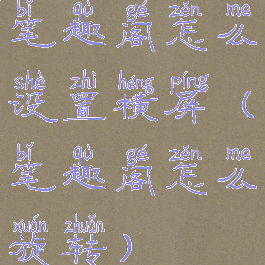 bǐ qù gé zěn me
笔趣阁怎么
shè zhì héng píng
设置横屏（
bǐ qù gé zěn me
笔趣阁怎么
xuán zhuǎn
旋转）